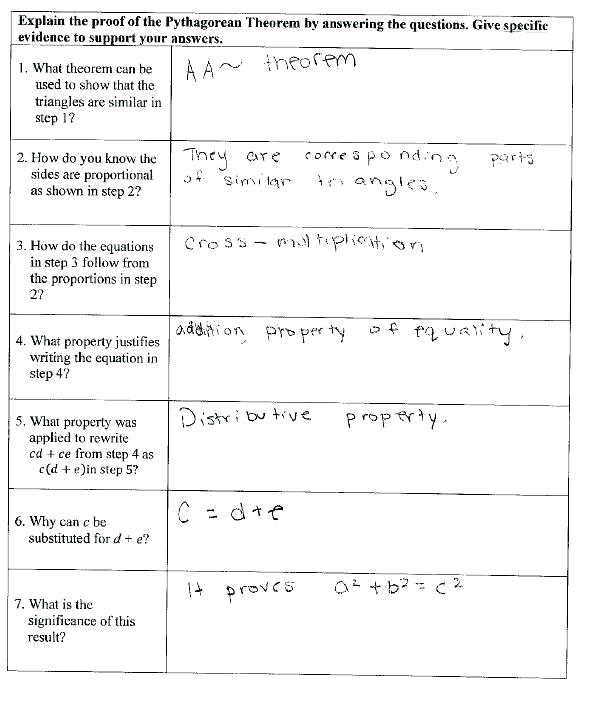 Explain the proof of the Pythagorean Theorem by answering the questions. Give specific
evidence to support your answers.
1. What theorem can be
used to show that the
triangles are similar in
step 1?
AA~ theorem
2. How do you know the
sides are proportional
as shown in step 2?
They are corresponding parts
of similar triangles.
3. How do the equations
in step 3 follow from
the proportions in step
2?
Cross-multiplication
4. What property justifies
writing the equation in
step 4?
addition property of equality.
5. What property was
applied to rewrite
cd + ce from step 4 as
c(d + e)in step 5?
Distributive property.
6. Why can c be
substituted for d + e?
C = d+e
7. What is the
significance of this
result?
It proves a² + b² = c²